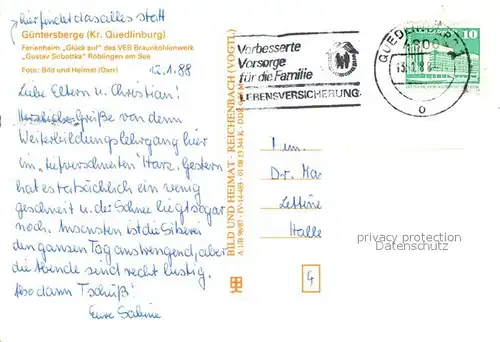 hier findet das alles statt
Güntersberge (Kr. Quedlinburg)
Ferienheim „Glück auf" des VEB Braunkohlenwerk
„Gustav Sobottka" Röblingen am See
Foto: Bild und Heimat (Darr)
12.1.88
Liebe Eltern u. Christian!
Herzliche Grüße von dem
Weiterbildungslehrgang hier
im „tiefverschneiten" Harz. Gestern
hat es tatsächlich ein wenig
geschneit u. der Schnee liegt sogar
noch. Ansonsten ist die
den ganzen Tag anstrengend, aber
die Abende sind recht lustig.
Also dann Tschüß!
Eure Sabine
BILD UND HEIMAT · REICHENBACH (VOGTL)
A 1/B 96/87 IV-14-483 01 08 13 344 K
Verbesserte
Vorsorge
für die Familie
LEBENSVERSICHERUNG
QUEDLINBURG
10
Dr. Mar
Lettine
Halle
4
privacy protection
Datenschutz